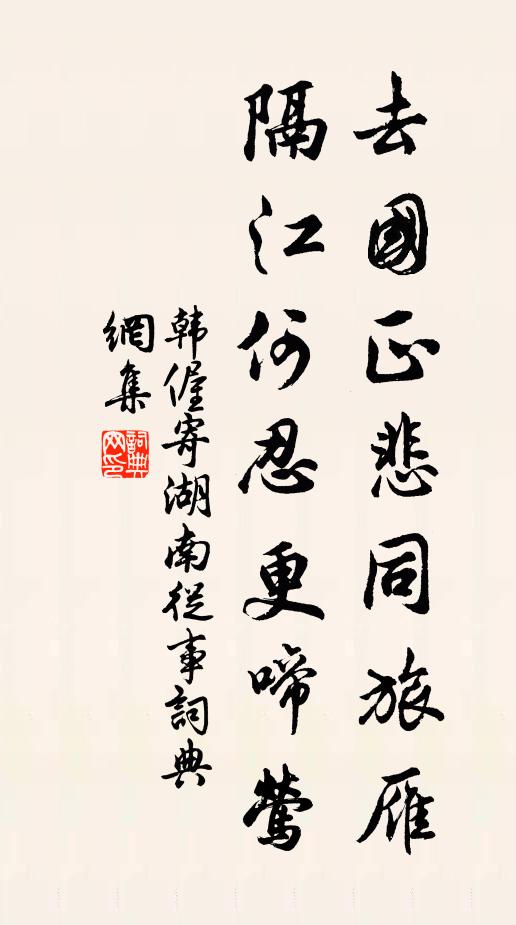 去國正悲同旅雁
隔江何忍更啼鶯
韓偓寄湖南從事詞典
網集
詞典
网印